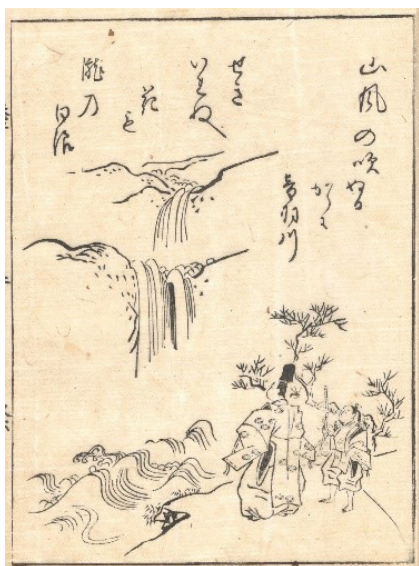 山風の吹ぬる
からに
音羽川
せき
いれぬ
花も
瀧乃
白浪